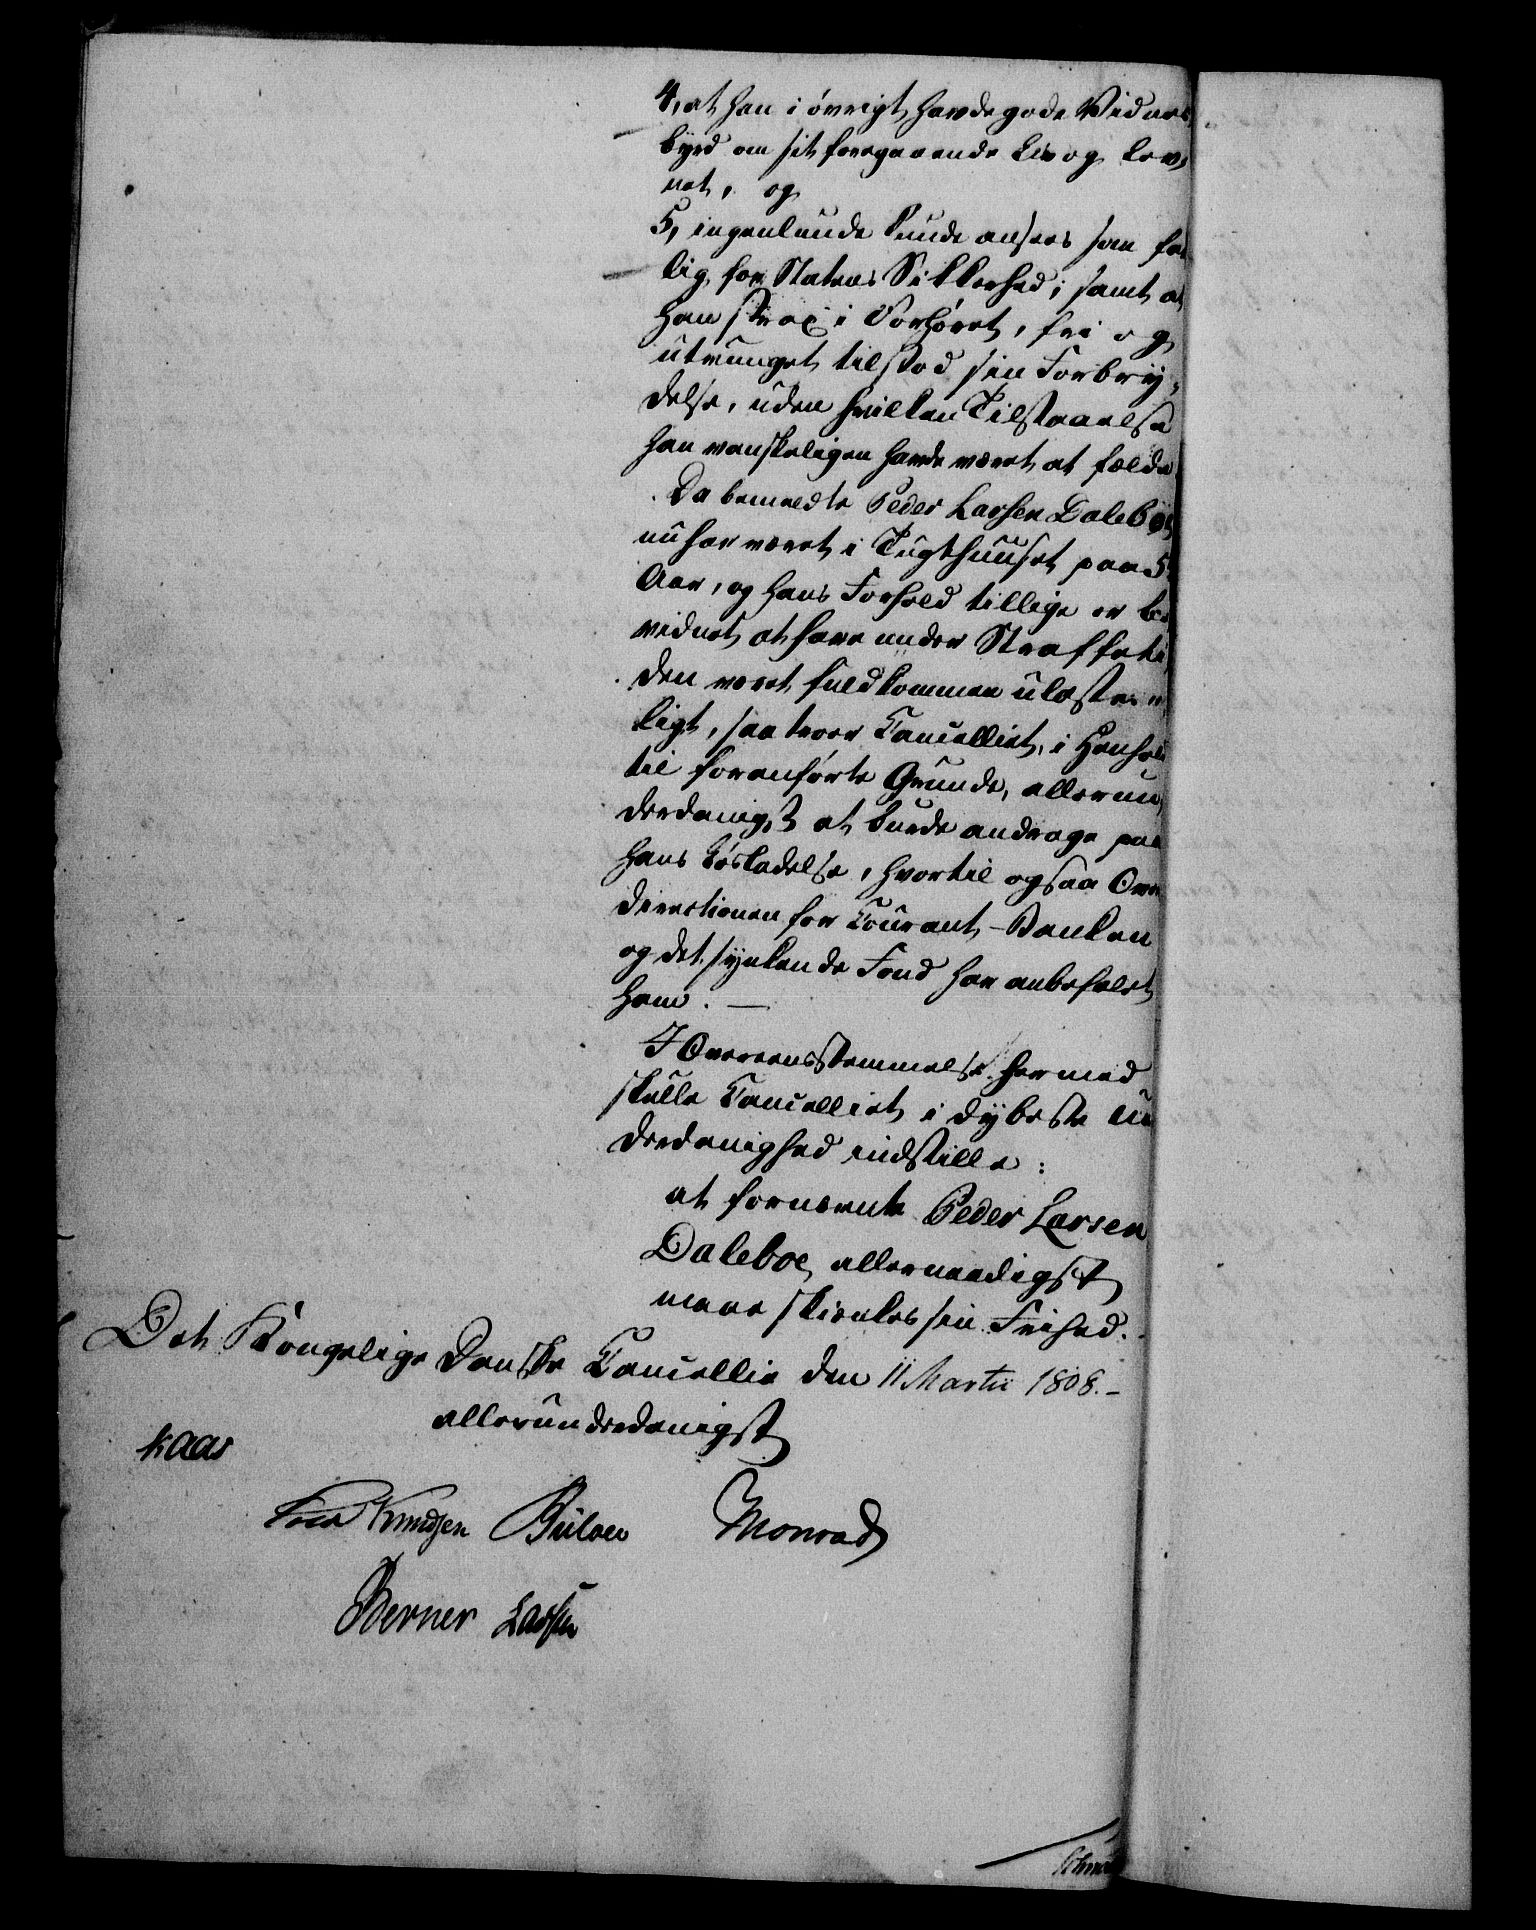 4, at han i övrigt havde gode Vidnes,
byrd om sit foregaaende Liv og Lev,
net, og
5, ingenlunde kunde ansees som far
lig for Statens Sikkerhed; samt at
han strax i Forhöret, fri og
utvunget tilstod sin Forbry,
delse, uden hvilken Tilstaaelse
han vanskeligen havde været at fælde.
Da bemeldte Peder Larsen Daleboe
nu har været i Tugthuuset paa 5
Aar, og hans Forhold tillige er be
vidnet at have under Straffeti,
den været fuldkommen ulastes
ligt, saa troer Cancelliet, i Henhold
til foranførte Grunde, allerun,
derdanigst at burde andrage paa
hans Løsladelse, hvortil ogsaa Over
directionen for Courant-Banken
og det synkende Fond har anbefalet
ham. —
I Overeensstemmelse hermed
skulle Cancelliet i dybeste Un
derdanighed indstille:
at fornævnte Peder Larsen
Daleboe allernaadigst
maae skienkes sin Frihed.
Det Kongelige Danske Cancellie den 11 Martii 1808.-
allerunderdanigst
Kaas
Knudsen Bülow Monrad
Berner Lassen